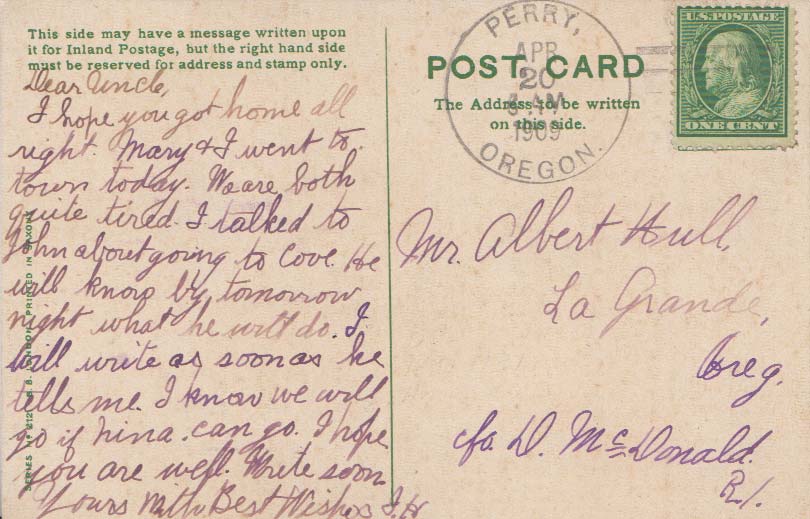 This side may have a message written upon
it for Inland Postage, but the right hand side
must be reserved for address and stamp only.
Dear Uncle,
I hope you got home all
right. Mary & I went to
town today. We are both
quite tired. I talked to
John about going to Cove. He
will know by tomorrow
night what he will do. I
will write as soon as he
tells me. I know we will
go if Nina can go. I hope
you are well. Write soon
Yours With Best Wishes I. H
PRINTED IN SAXONY
SERIES
PERRY,
APR
20
AM
1909
OREGON.
U.S. POSTAGE
ONE CENT
POST CARD
The Address to be written
on this side.
Mr. Albert Hull,
La Grande,
Oreg.
c/o. D. McDonald.
R1.